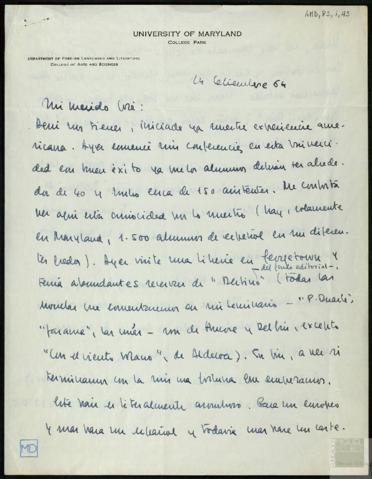 AMD, 82, 1, 43
UNIVERSITY OF MARYLAND
COLLEGE PARK
DEPARTMENT OF FOREIGN LANGUAGES AND LITERATURE
COLLEGE OF ARTS AND SCIENCES
24 Setiembre 64
Mi querido José:
Aquí nos tienes, iniciada ya nuestra experiencia ame-
ricana. Ayer comencé mis conferencias en esta Universi-
dad con buen éxito ya que los alumnos debían ser alrede-
dor de 40 y hubo cerca de 150 asistentes. Me conforta
ver aquí esta curiosidad por lo nuestro (hay, solamente
en Maryland, 1.500 alumnos de español en sus diferen-
tes grados). Ayer visité una librería en Georgetown y
- del fondo editorial -
tenía abundantes reservas de "Destino" (todas las
novelas que comentaremos en mi seminario - "P. Duarte",
"Jarama", las mías - son de Áncora y Delfín, excepto
"Con el viento solano", de Aldecoa). En fin, a ver si
terminamos con la misma fortuna que empezamos.
Este país es literalmente asombroso. Para un europeo
y más para un español y todavía más para un caste-
MD